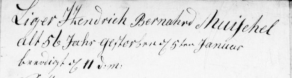 Hendrich Bernahrd Muischel
Alt 56 Jahr gestorben d 5ten Januar
beerdigt d 11 d. m.